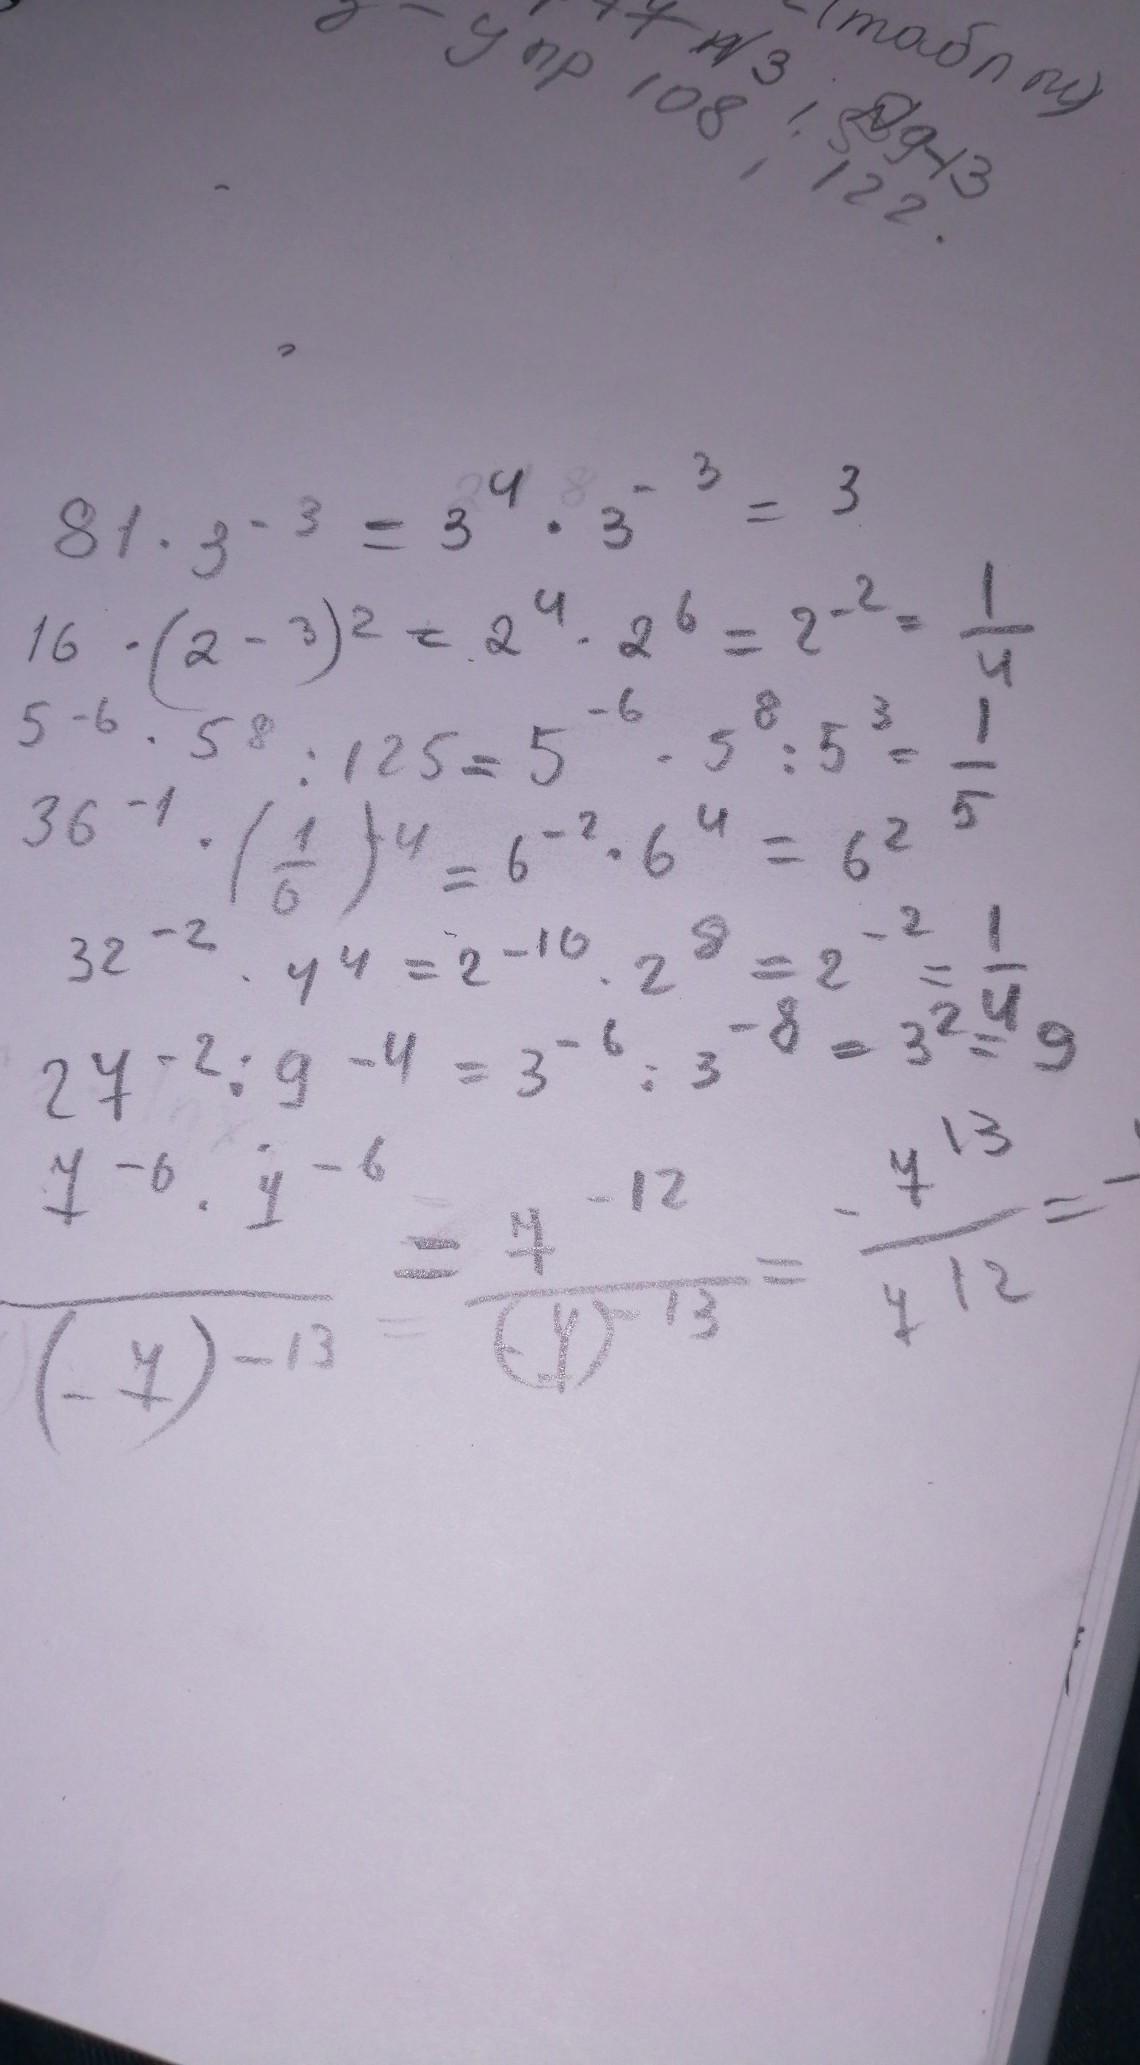 (табл
у - упр 108, 122.
81 · 3⁻³ = 3⁴ · 3⁻³ = 3
16 · (2⁻³)² = 2⁴ · 2⁶ = 2⁻² = 1/4
5⁻⁶ · 5⁸ : 125 = 5⁻⁶ · 5⁸ : 5³ = 1/5
36⁻¹ · (1/6)⁻⁴ = 6⁻² · 6⁴ = 6²
32⁻² · 4⁴ = 2⁻¹⁰ · 2⁸ = 2⁻² = 1/4
27⁻² : 9⁻⁴ = 3⁻⁶ : 3⁻⁸ = 3² = 9
7⁻⁶ · 7⁻⁶ / (-7)⁻¹³ = 7⁻¹² / (-7)⁻¹³ = - 7¹³ / 7¹² = -